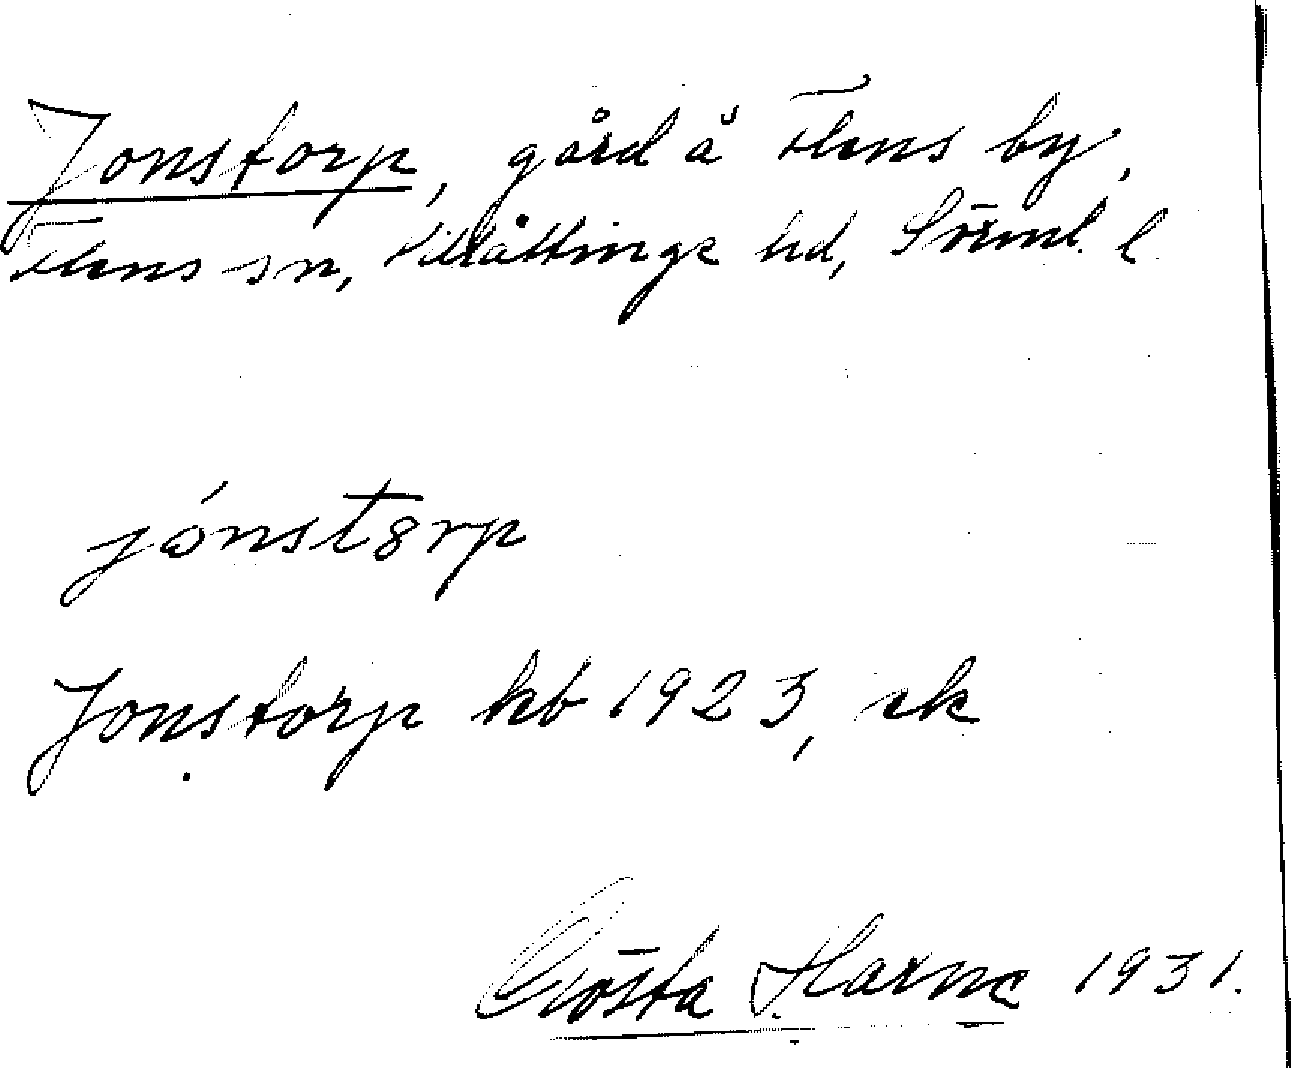 Jonstorp, gård å Flens by,
Flens sn, Villåttinge hd, Söderml. l
jónstorp
Jonstorp kb 1923, ek
Gösta Harne 1931.